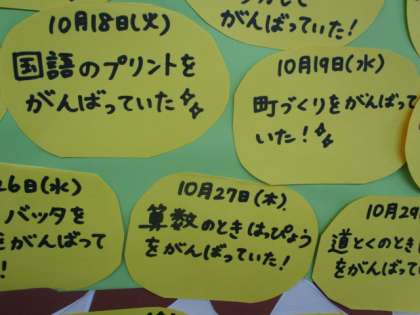 がんばっていた!
10月18日(火)
国語のプリントを
がんばっていた
10月19日(水)
町づくりをがんばって
いた!
26日(水)
バッタを
がんばって
!
10月27日(木)
算数のときはっぴょう
をがんばっていた!
10月29
道とくのとき
をがんばってい